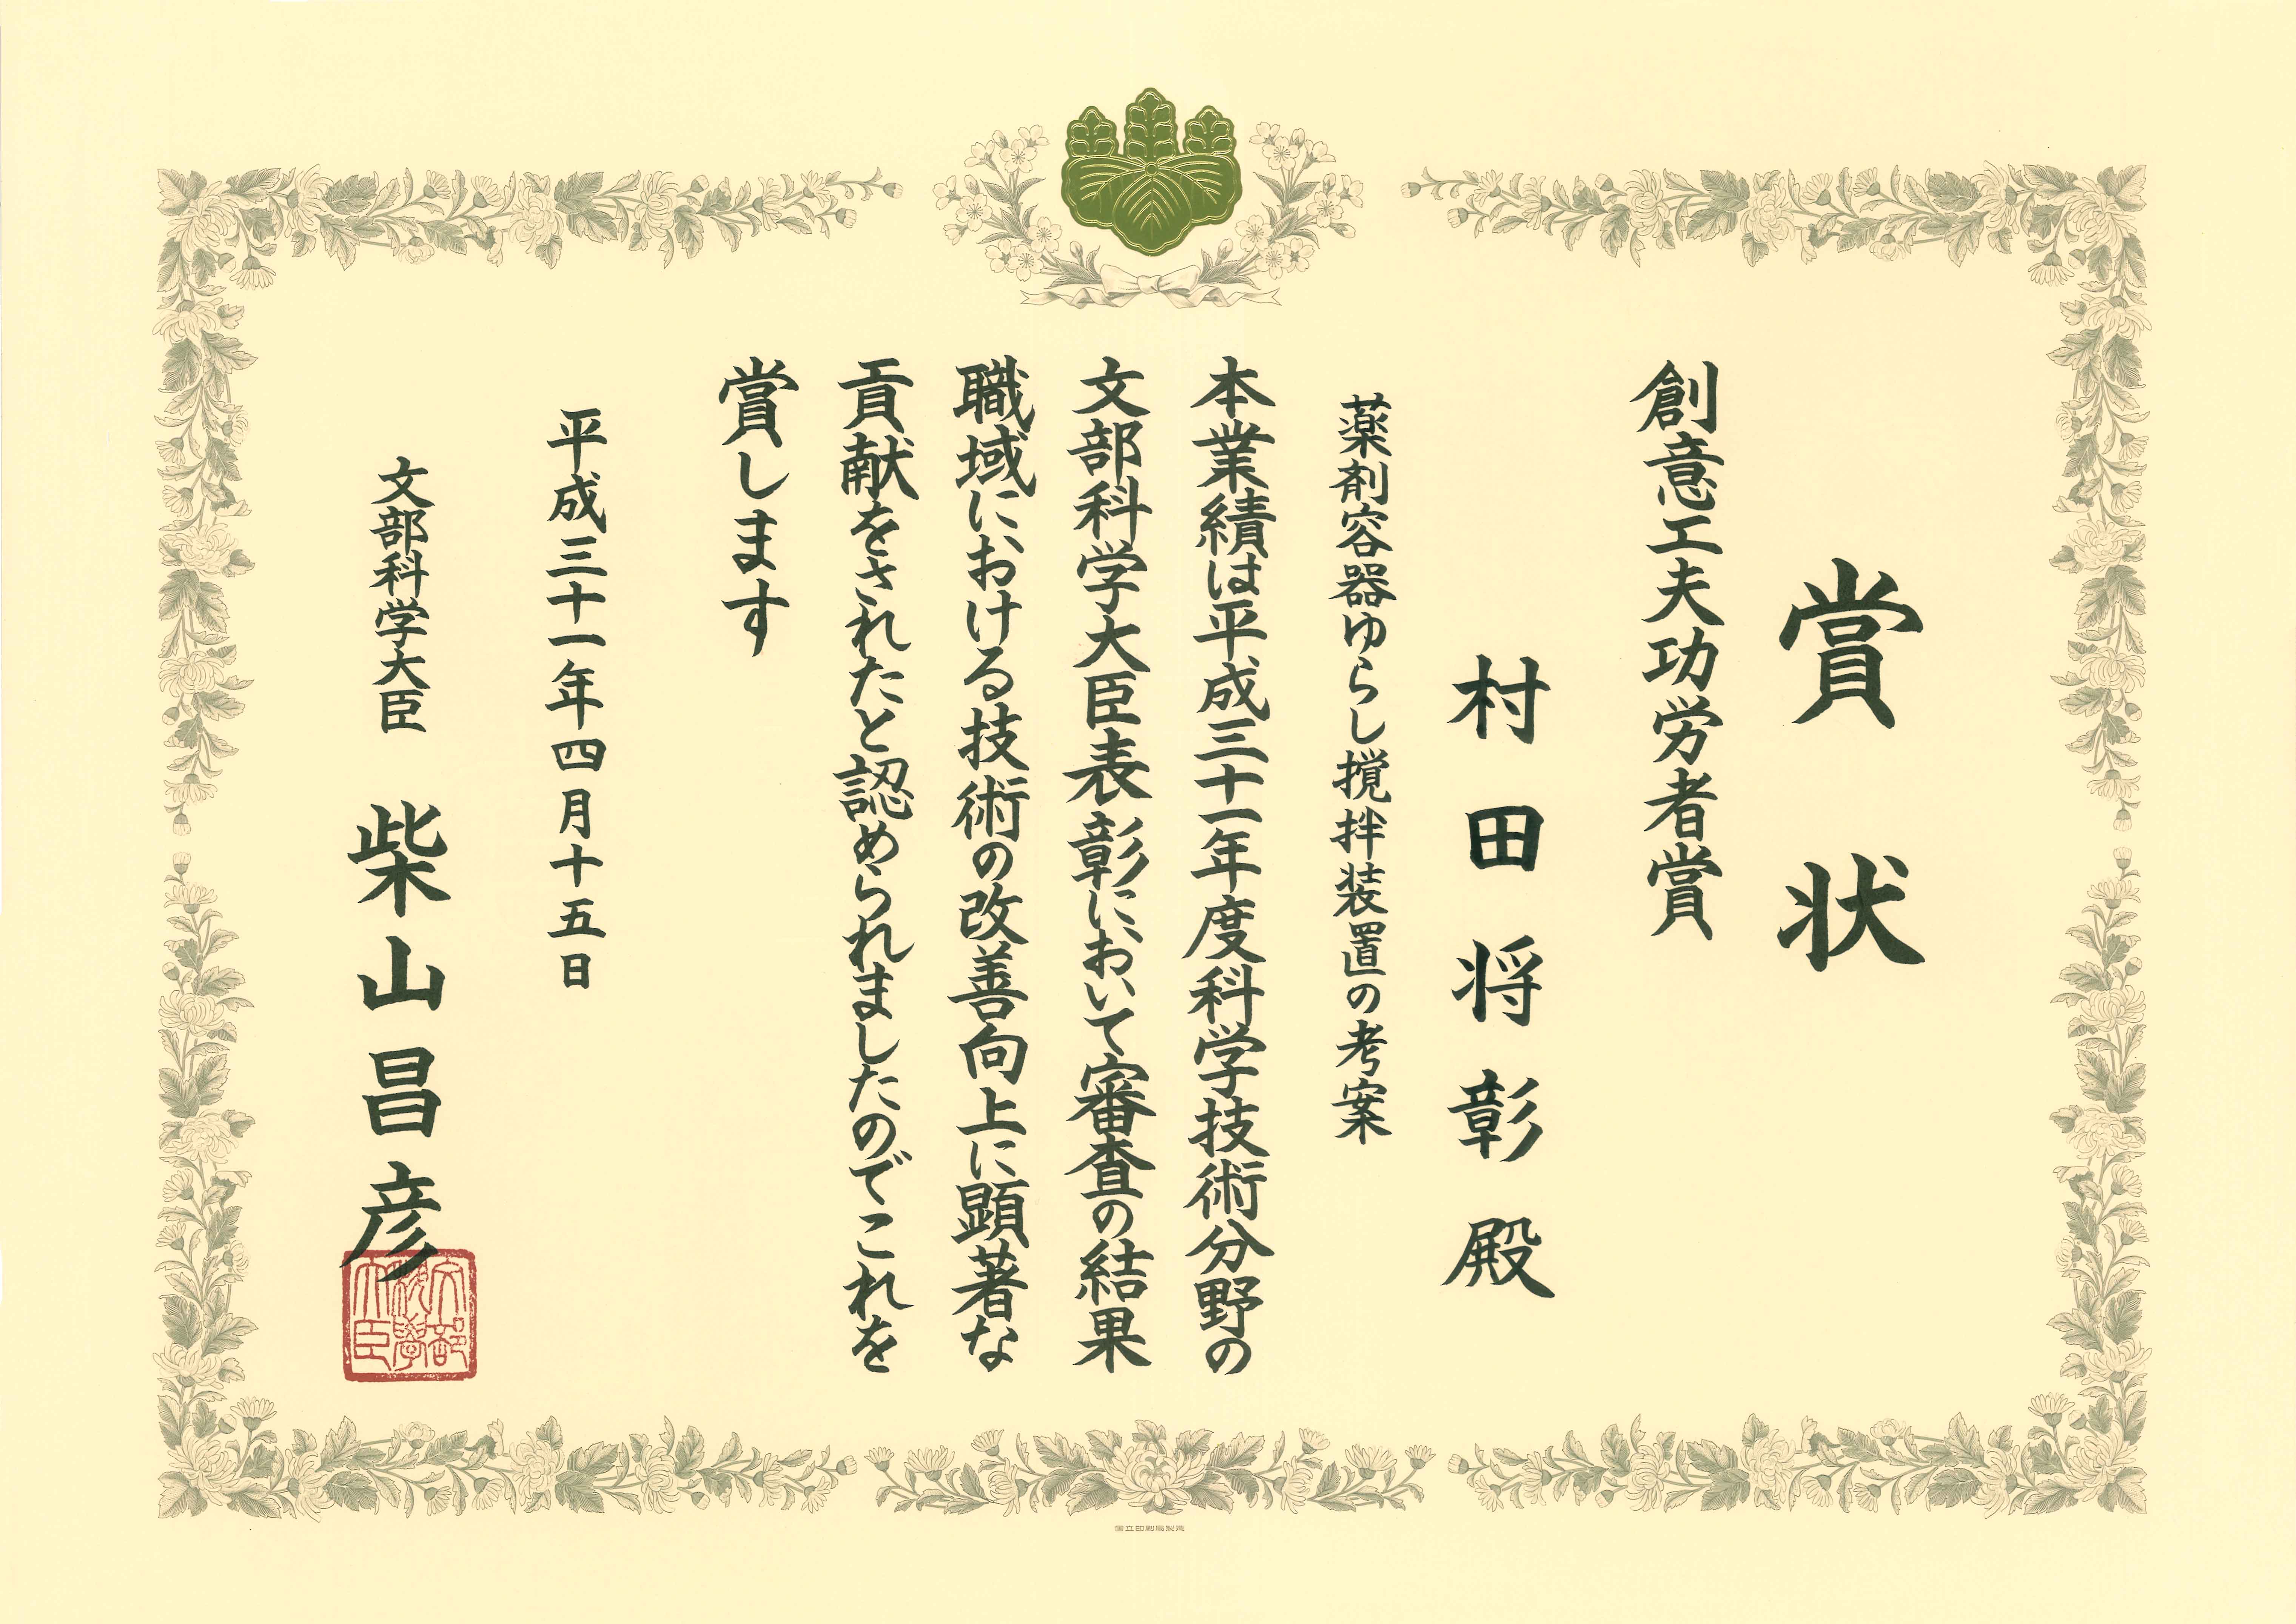 賞状
創意工夫功労者賞
村田将彰殿
薬剤容器ゆらし撹拌装置の考案
本業績は平成三十一年度科学技術分野の
文部科学大臣表彰において審査の結果
職域における技術の改善向上に顕著な
貢献をされたと認められましたのでこれを
賞します
平成三十一年四月十五日
文部科学大臣 柴山昌彦
文部科學大臣
国立印刷局製造